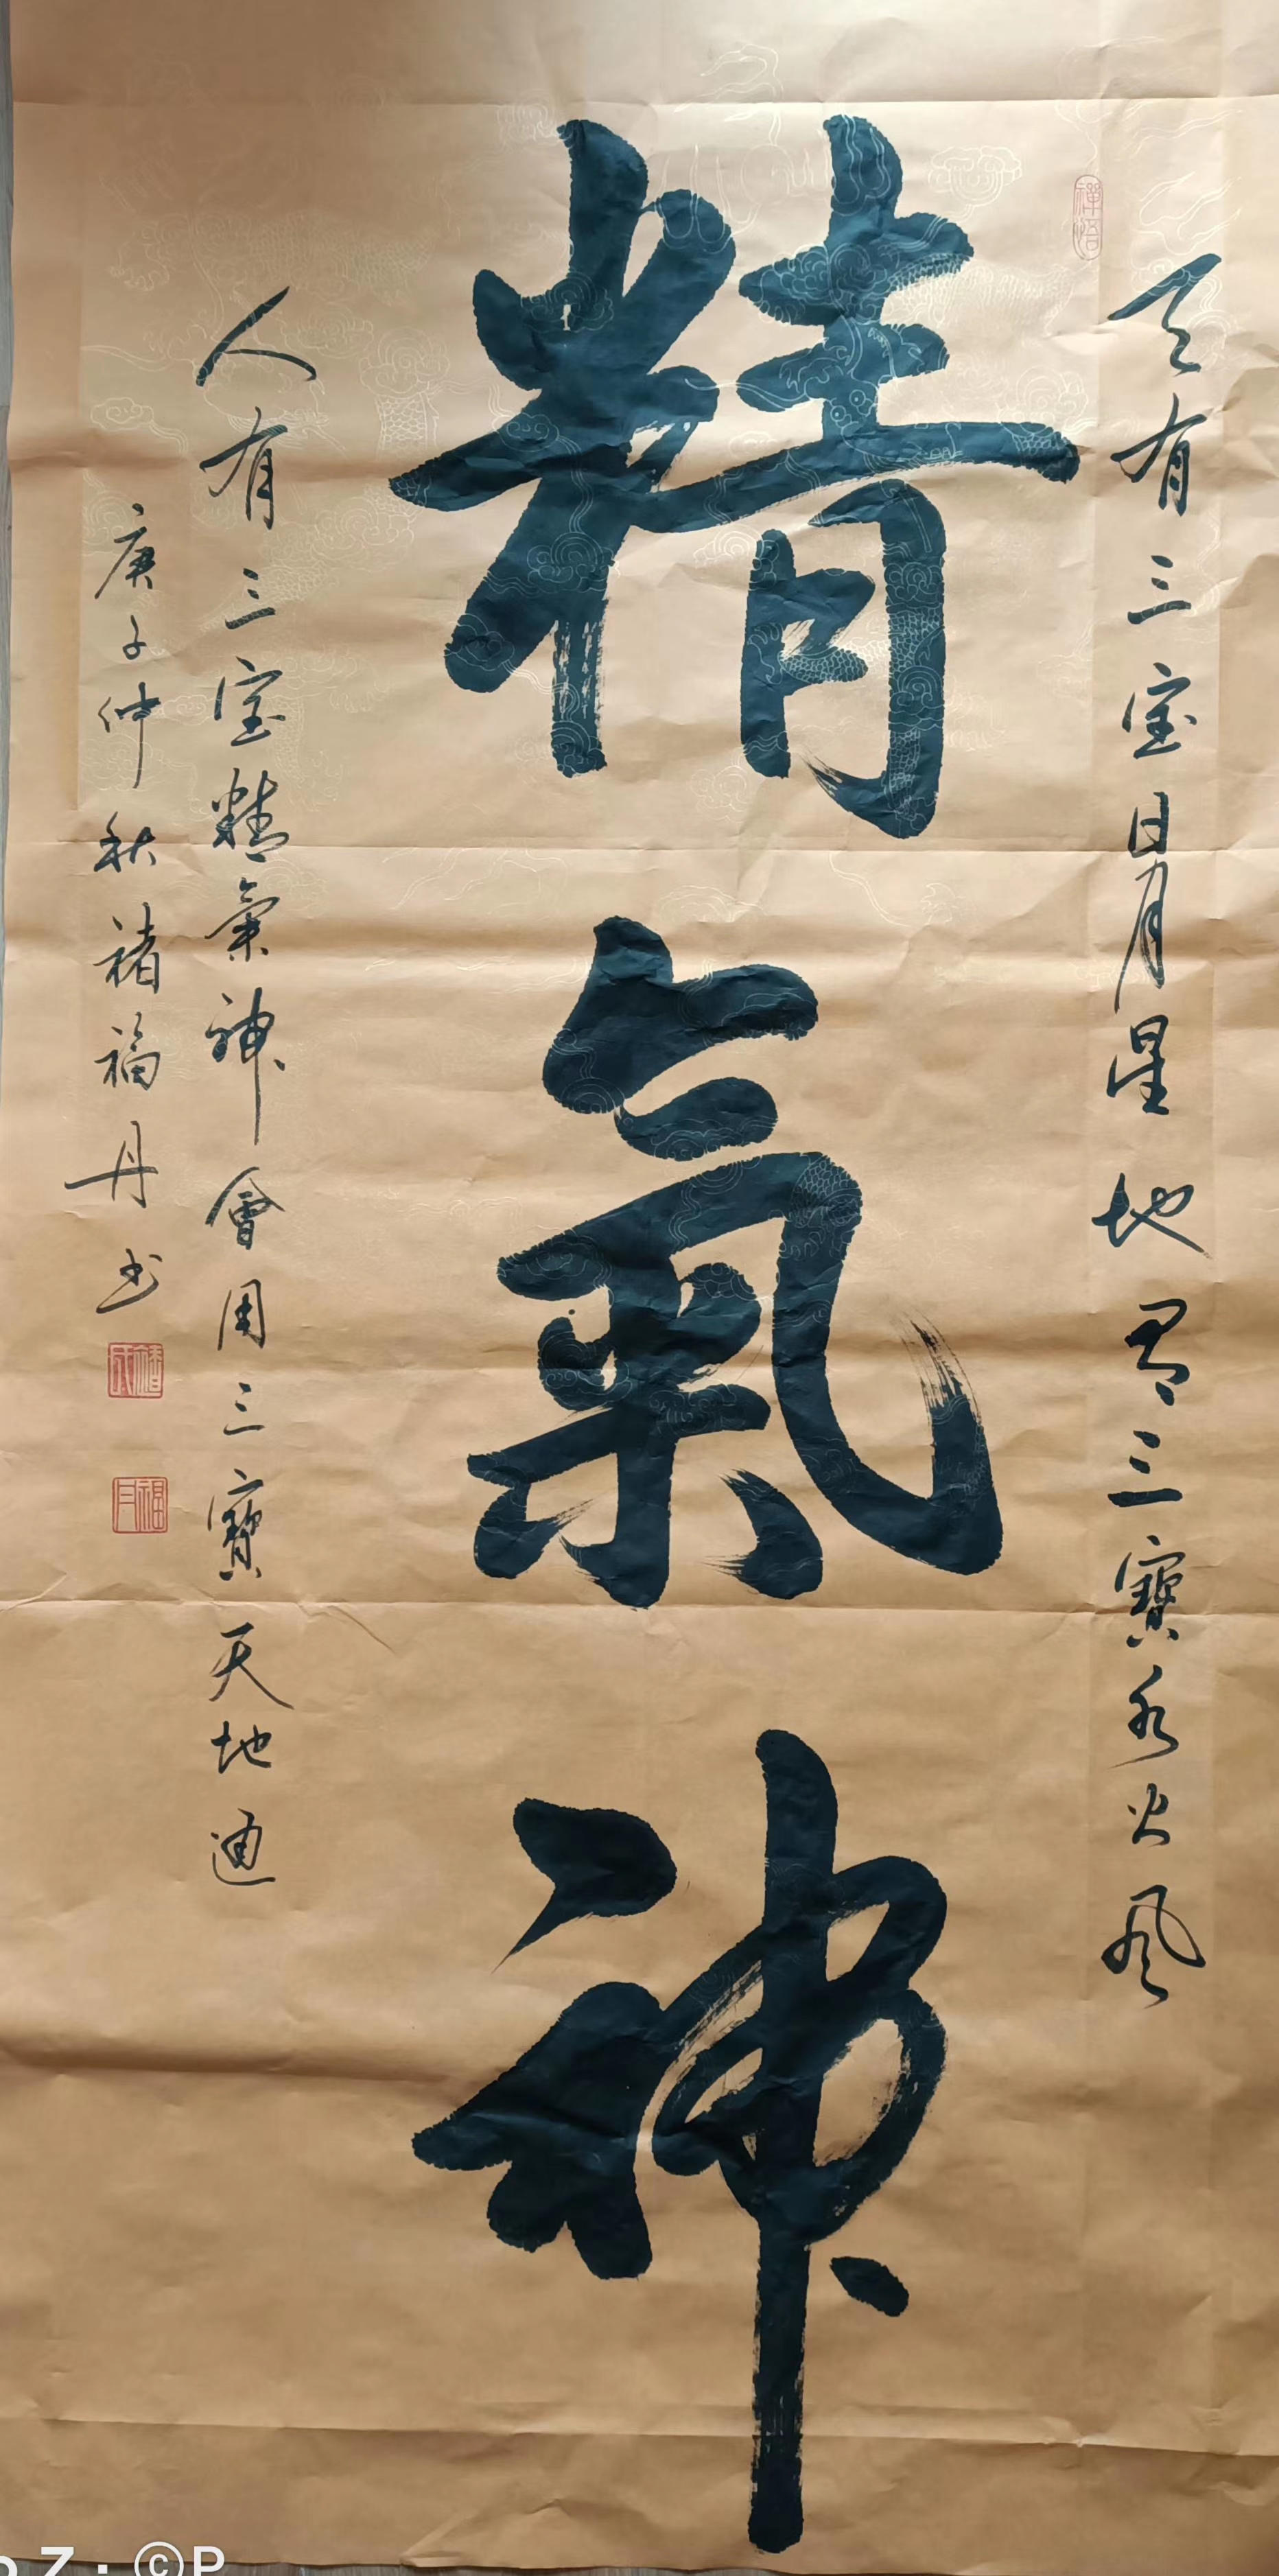 禅悟
天有三宝日月星地有三寶水火风
精氣神
人有三宝精氣神會用三寶天地通
庚子仲秋褚福丹书
褚氏
福丹
Z · ©P